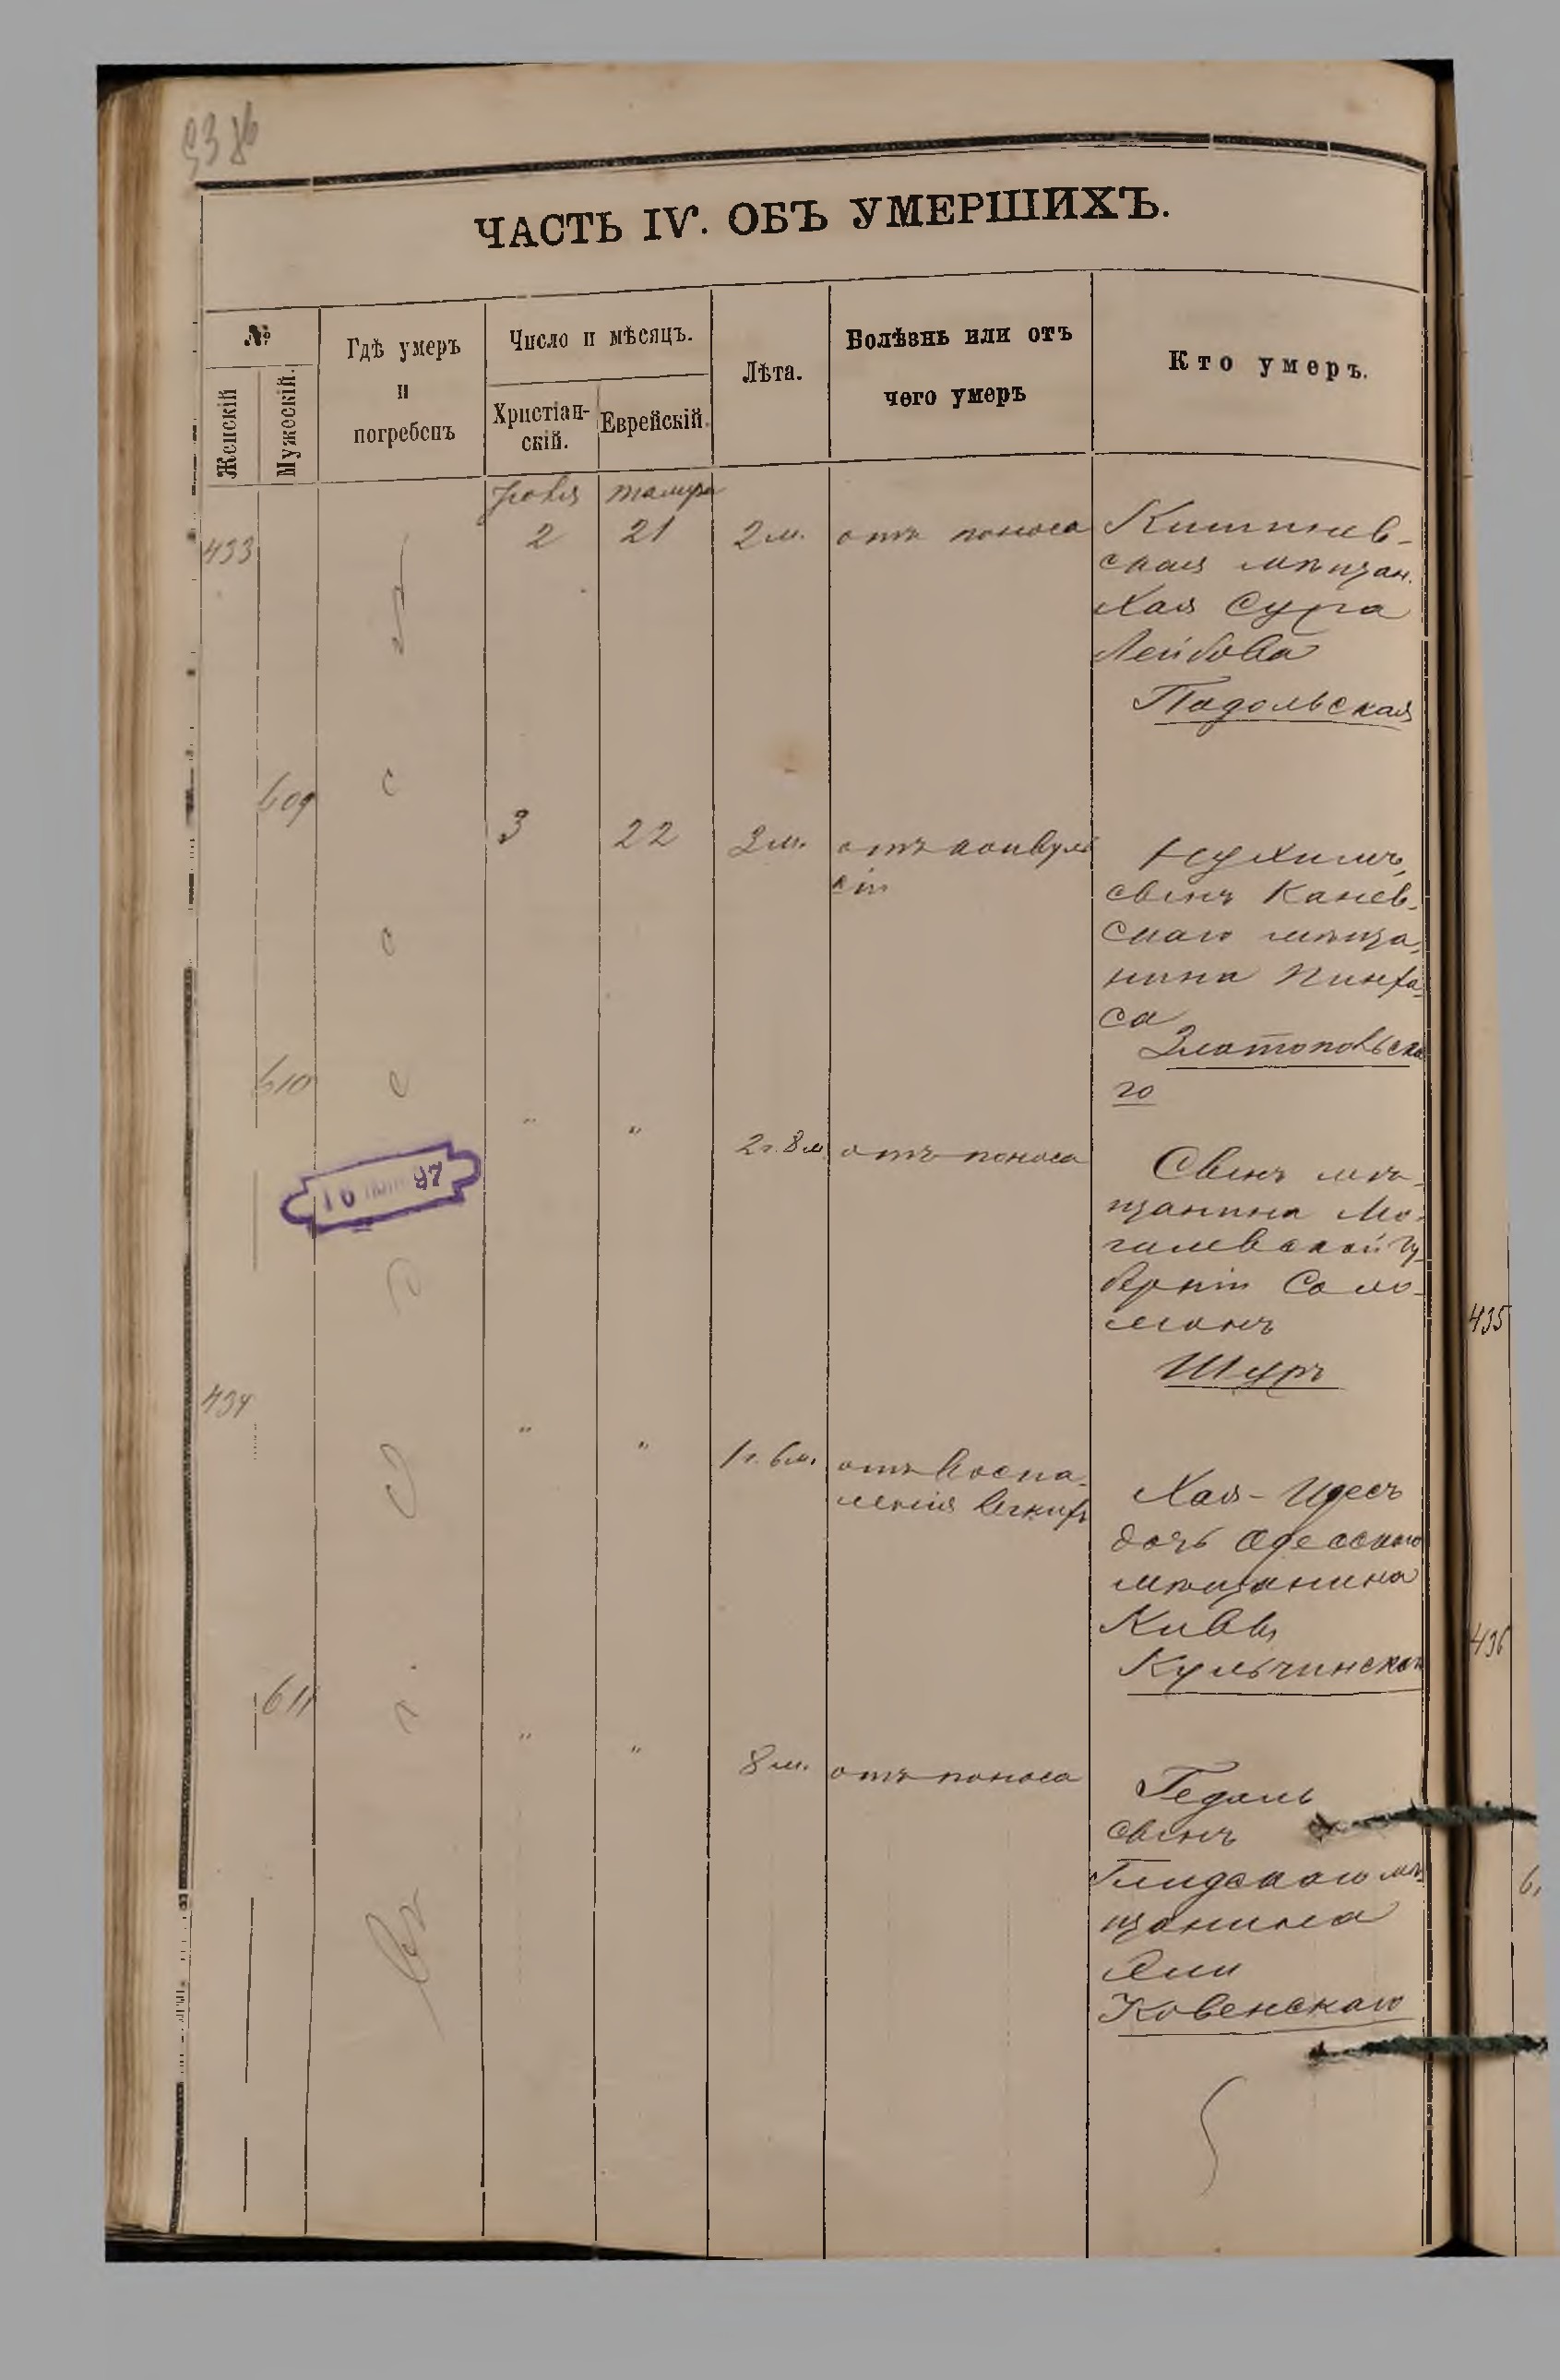 ЧАСТЬ IV. ОБЪ УМЕРШИХЪ.
№
Женскій
Мужескій.
Гдѣ умеръ
и
погребенъ
Число и мѣсяцъ.
Христіан-
скій.
Еврейскій.
Лѣта.
Болѣзнь или отъ
чего умеръ
Кто умеръ.
Іюля
433
2
21
2 м.
отъ поноса
Кишинев-
ская мѣщан.
Хая Сура
Лейбова
Падольская
609
с
3
22
3 м.
отъ конвуль
сіи
Нухимъ,
сынъ Канев-
скаго мѣща-
нина Пинха-
са
Златопольска
го
с
610
с
"
"
2 г. 8 м.
отъ поноса
Сынъ мѣ-
щанина Мо-
гилевской Гу-
берніи Соло-
монъ
Шуръ
16 97
434
"
"
1 г. 6 м.
отъ воспа-
ленія легкихъ
Хая-Идесъ
дочь Одесскаго
мѣщанина
Киввы
Кульчинскаго
611
"
"
8 м.
отъ поноса
Гедаль
сынъ
мѣ-
щанина
Ели
Ковенскаго
435
436